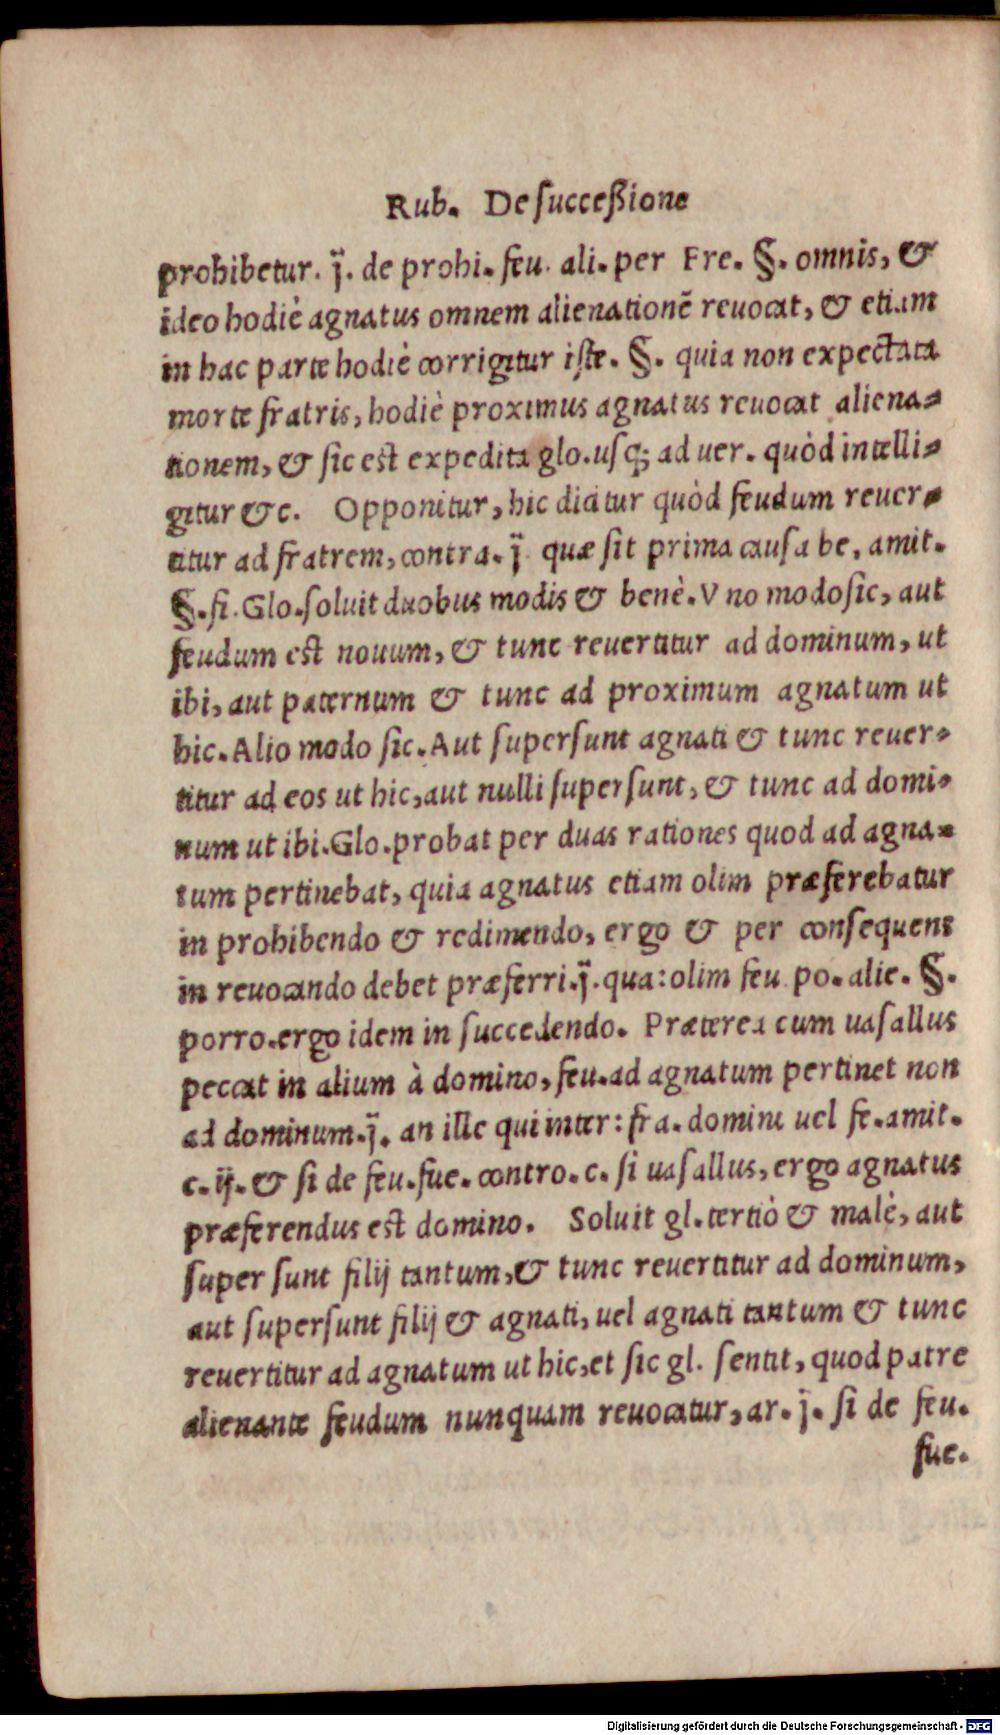 Rub. De succeßione
prohibetur. j̈. de prohi. feu. ali. per Fre. §. omnis, &
ideo hodiè agnatus omnem alienationē reuocat, & etiam
in hac parte hodiè corrigitur iste. §. quia non expectata
morte fratris, hodiè proximus agnatus reuocat aliena-
tionem, & sic est expedita glo. usq; ad uer. quòd intelli-
gitur &c. Opponitur, hic dicitur quòd feudum reuer-
titur ad fratrem, contra. j̈ quæ sit prima causa be. amit.
§. fi. Glo. soluit duobus modis & benè. Vno modo sic, aut
feudum est nouum, & tunc reuertitur ad dominum, ut
ibi, aut paternum & tunc ad proximum agnatum ut
hic. Alio modo sic. Aut supersunt agnati & tunc reuer-
titur ad eos ut hic, aut nulli supersunt, & tunc ad domi-
num ut ibi. Glo. probat per duas rationes quod ad agna-
tum pertinebat, quia agnatus etiam olim præferebatur
in prohibendo & redimendo, ergo & per consequens
in reuocando debet præferri. j̈. qua: olim feu po. alie. §.
porro. ergo idem in succedendo. Præterea cum uasallus
peccat in alium à domino, feu. ad agnatum pertinet non
ad dominum. j̈. an ille qui inter: fra. domini uel fe. amit.
c. ij. & si de feu. fue. contro. c. si uasallus, ergo agnatus
præferendus est domino. Soluit gl. tertiò & malè, aut
super sunt filij tantum, & tunc reuertitur ad dominum,
aut supersunt filij & agnati, uel agnati tantum & tunc
reuertitur ad agnatum ut hic, et sic gl. sentit, quod patre
alienante feudum nunquam reuocatur, ar. j̈. si de feu.
fue.
Digitalisierung gefördert durch die Deutsche Forschungsgemeinschaft - DFG